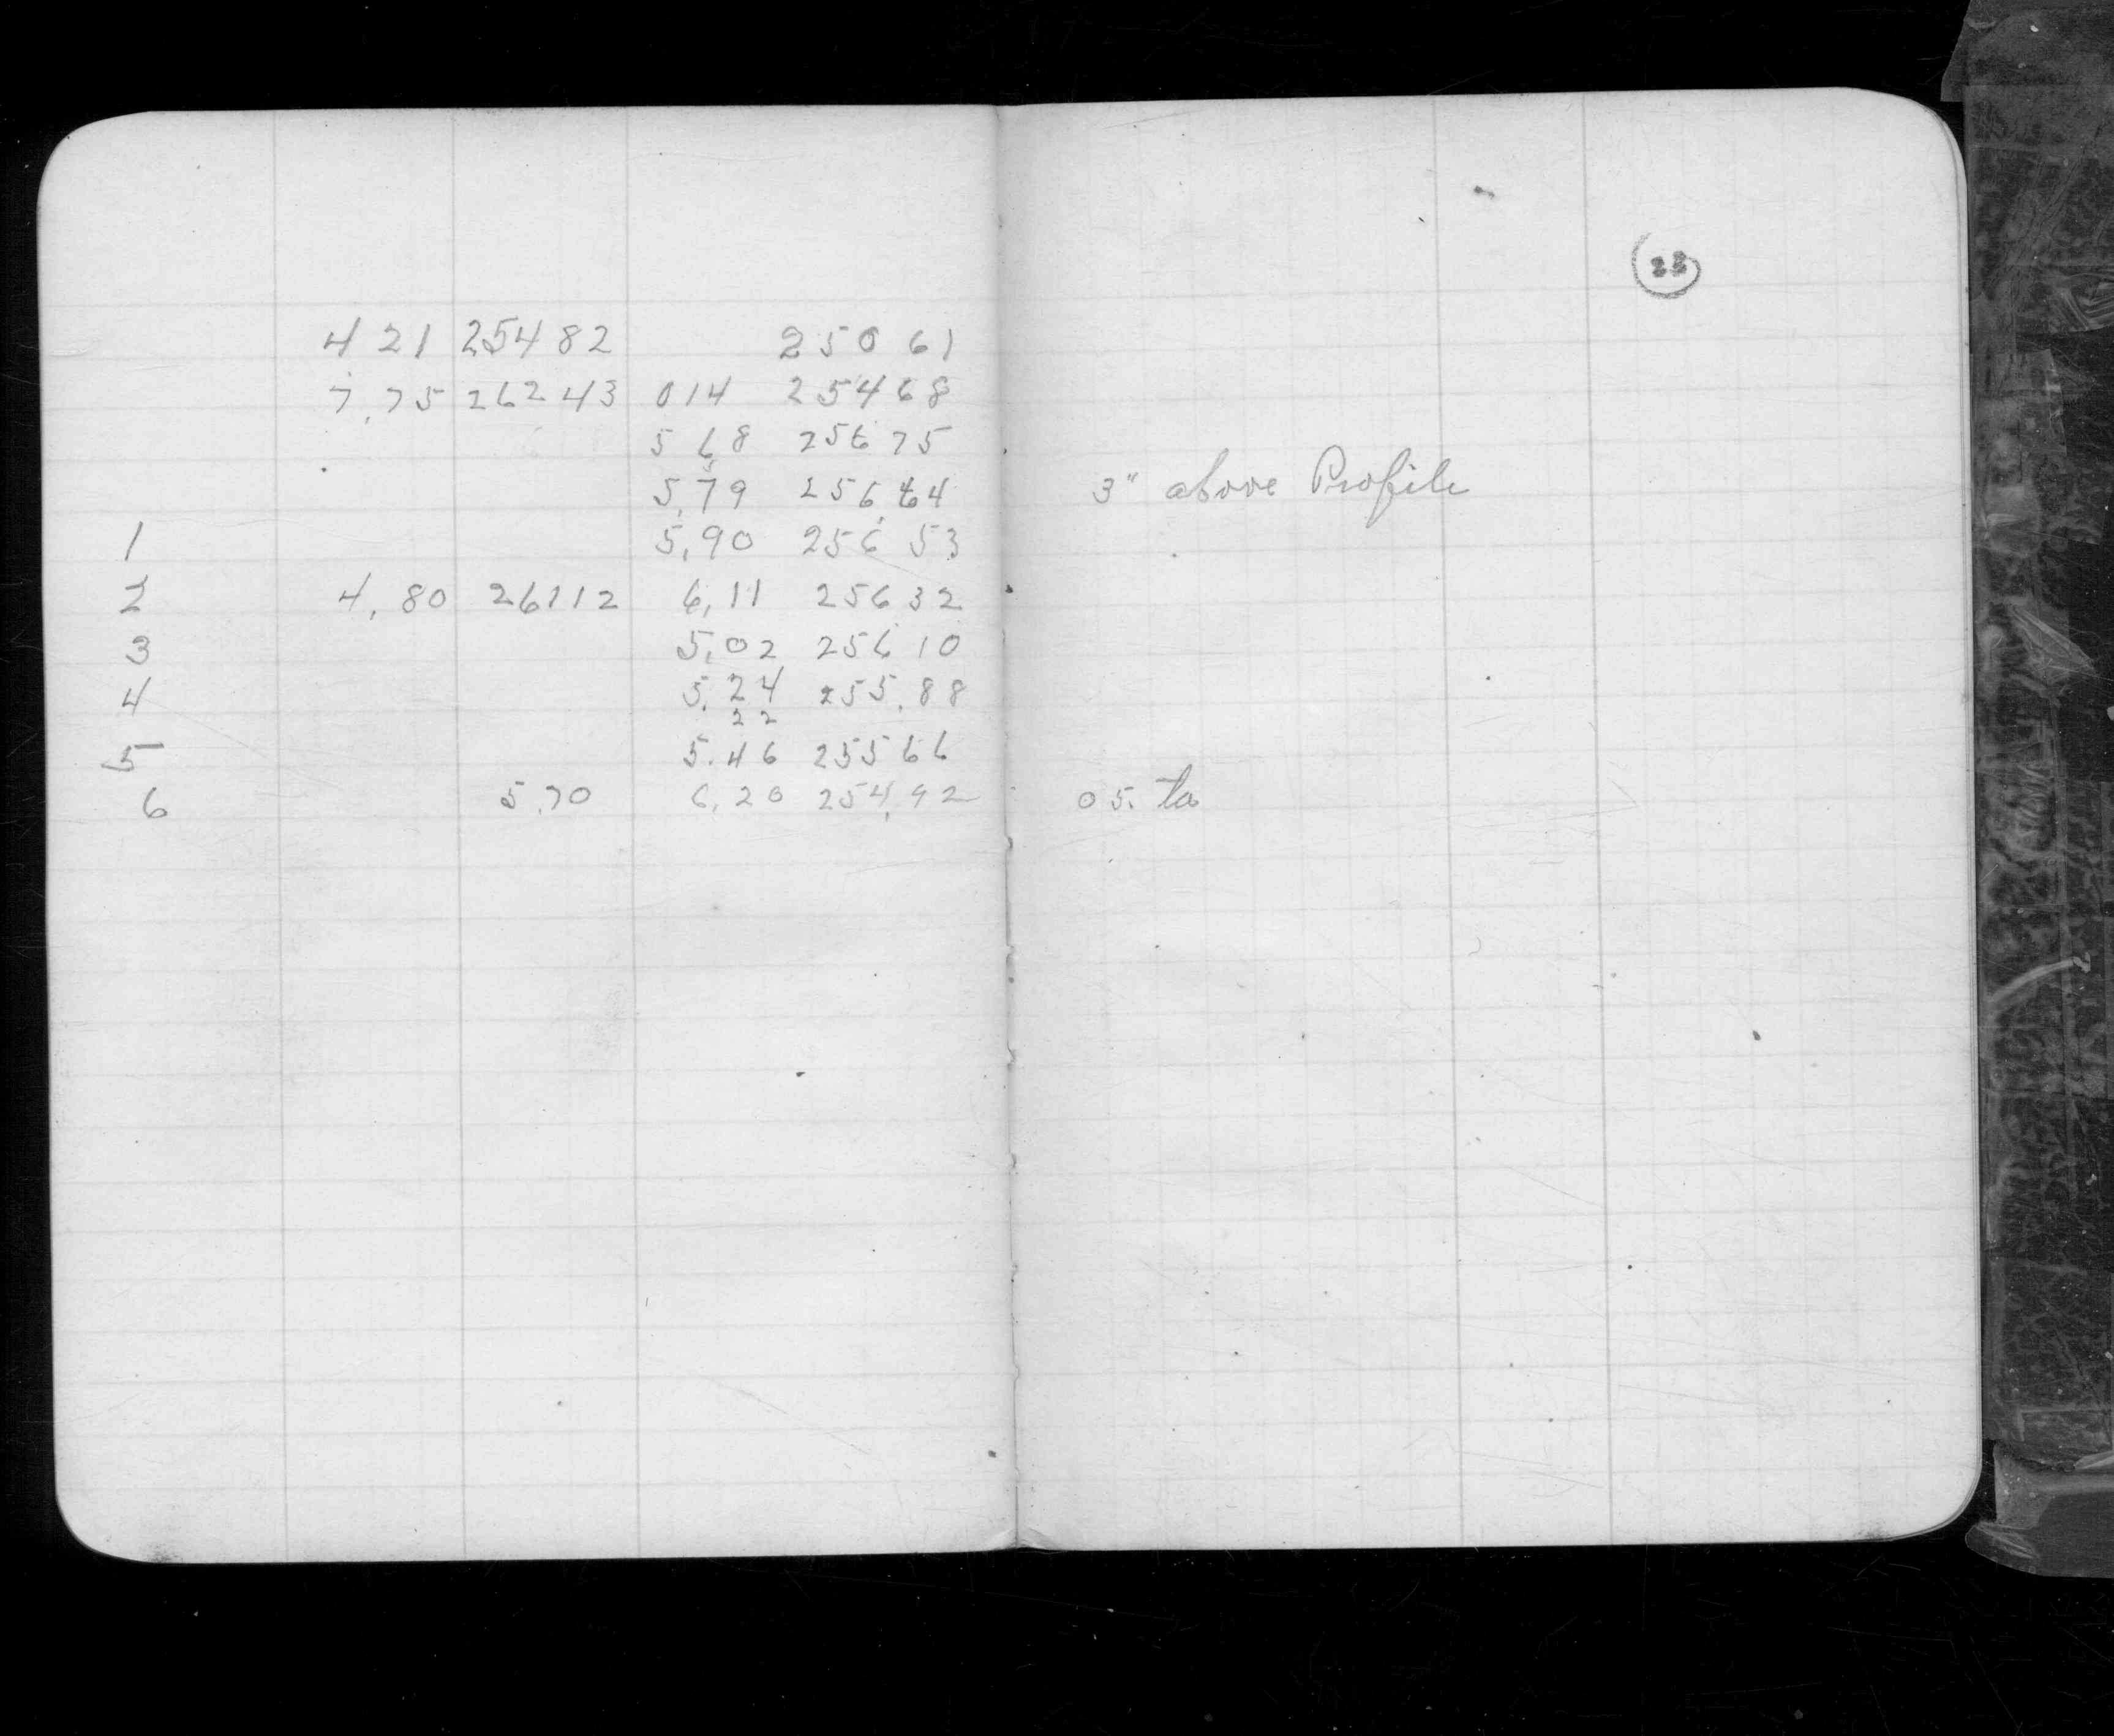 33
4 21 254 82 250 61
7,75 262 43 0 14 254 68
5 68 256 75
5,79 256,64 3" above Profile
1 5,90 256 53
2 4,80 261 12 6,11 256 32
3 5,02 256 10
4 5,24 255,88
22
5 5.46 255 66
6 5,70 6,20 254,92 05. to